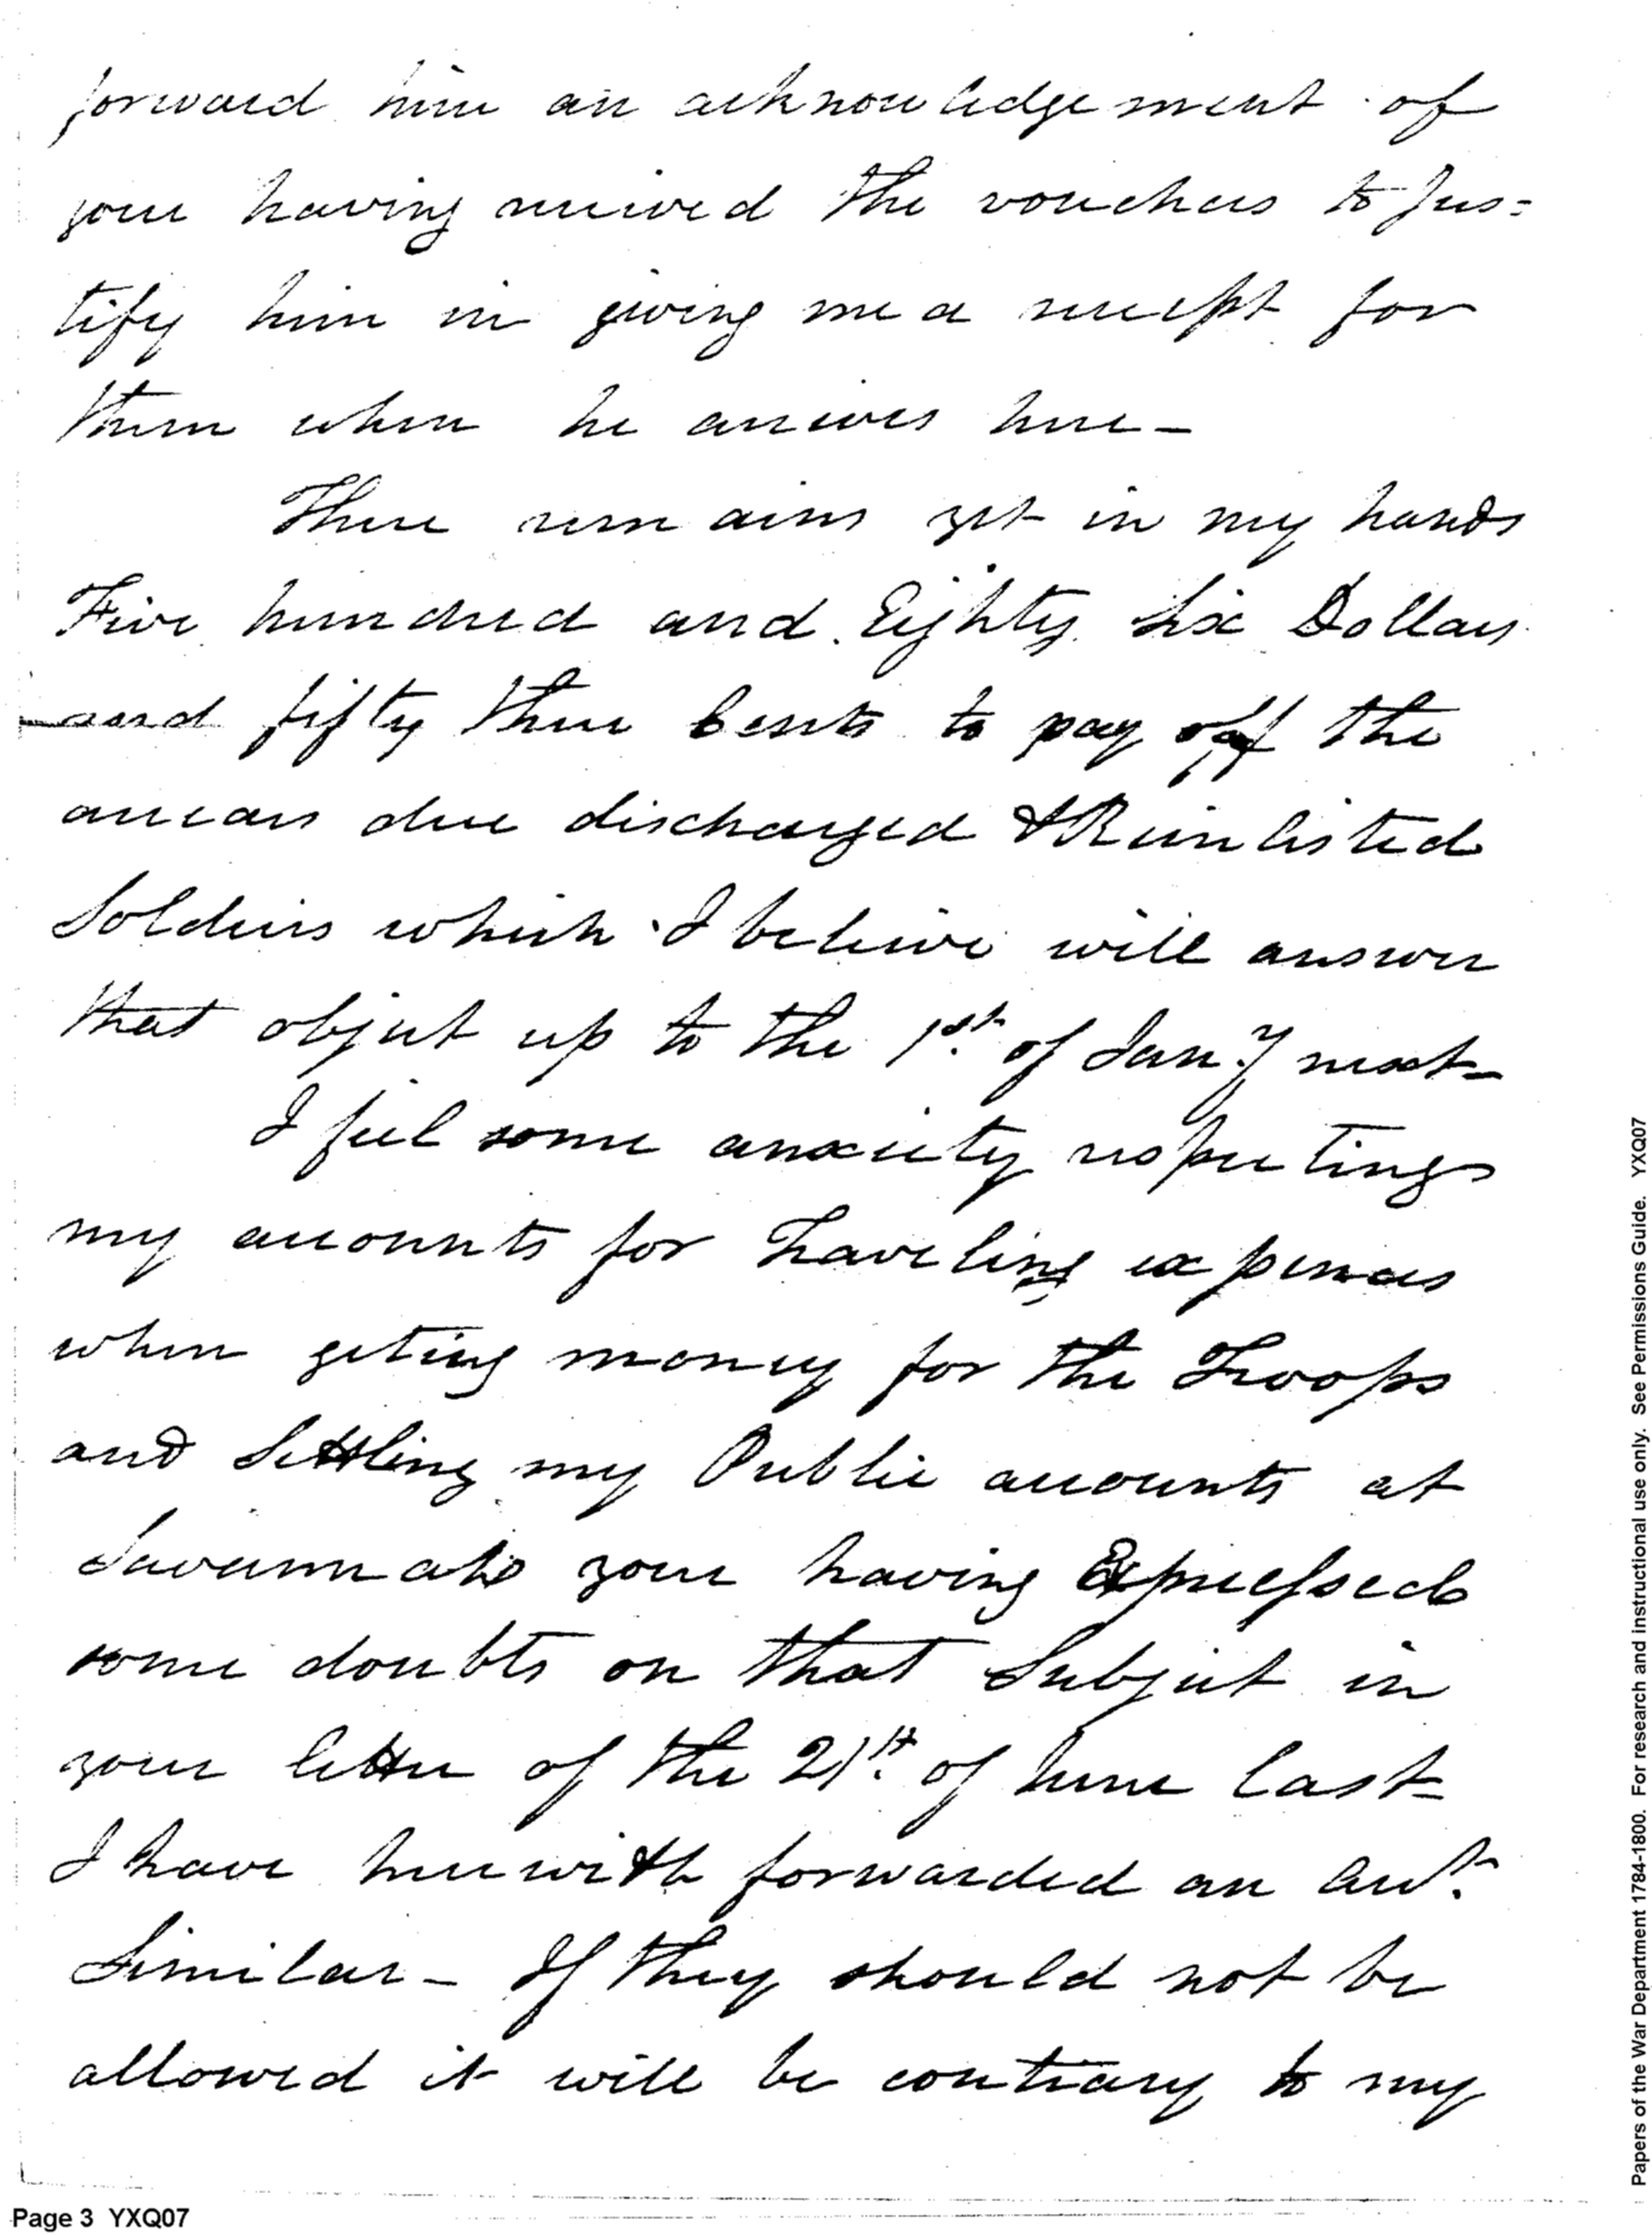 forward him an acknowledgement of
your having received the vouchers to Jus=
tify him in giving me a receipt for
them when he arrives here -
There remains yet in my hands
Five hundred and Eighty Six Dollars
and fifty three Cents to pay off the
arrears due discharged & Reinlisted
Soldiers which I believe will answer
that object up to the 1st. of Jany. next -
I feel some anxiety respecting
my accounts for Traveling expences
when geting money for the Troops
and Settling my Public accounts at
Savannah your having Expressed
some doubts on that Subject in
your letter of the 21st. of June last -
I have herewith forwarded an acct.
Similar - If they should not be
allowed it will be contrary to my
Page 3 YXQ07
Papers of the War Department 1784-1800. For research and instructional use only. See Permissions Guide. YXQ07